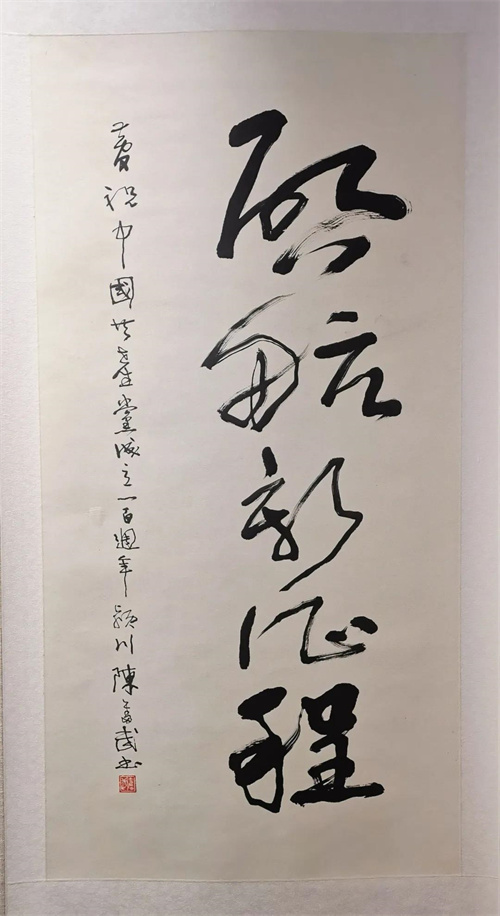 啟航新征程
慶祝中國共產黨成立一百週年 穎川陳 武書